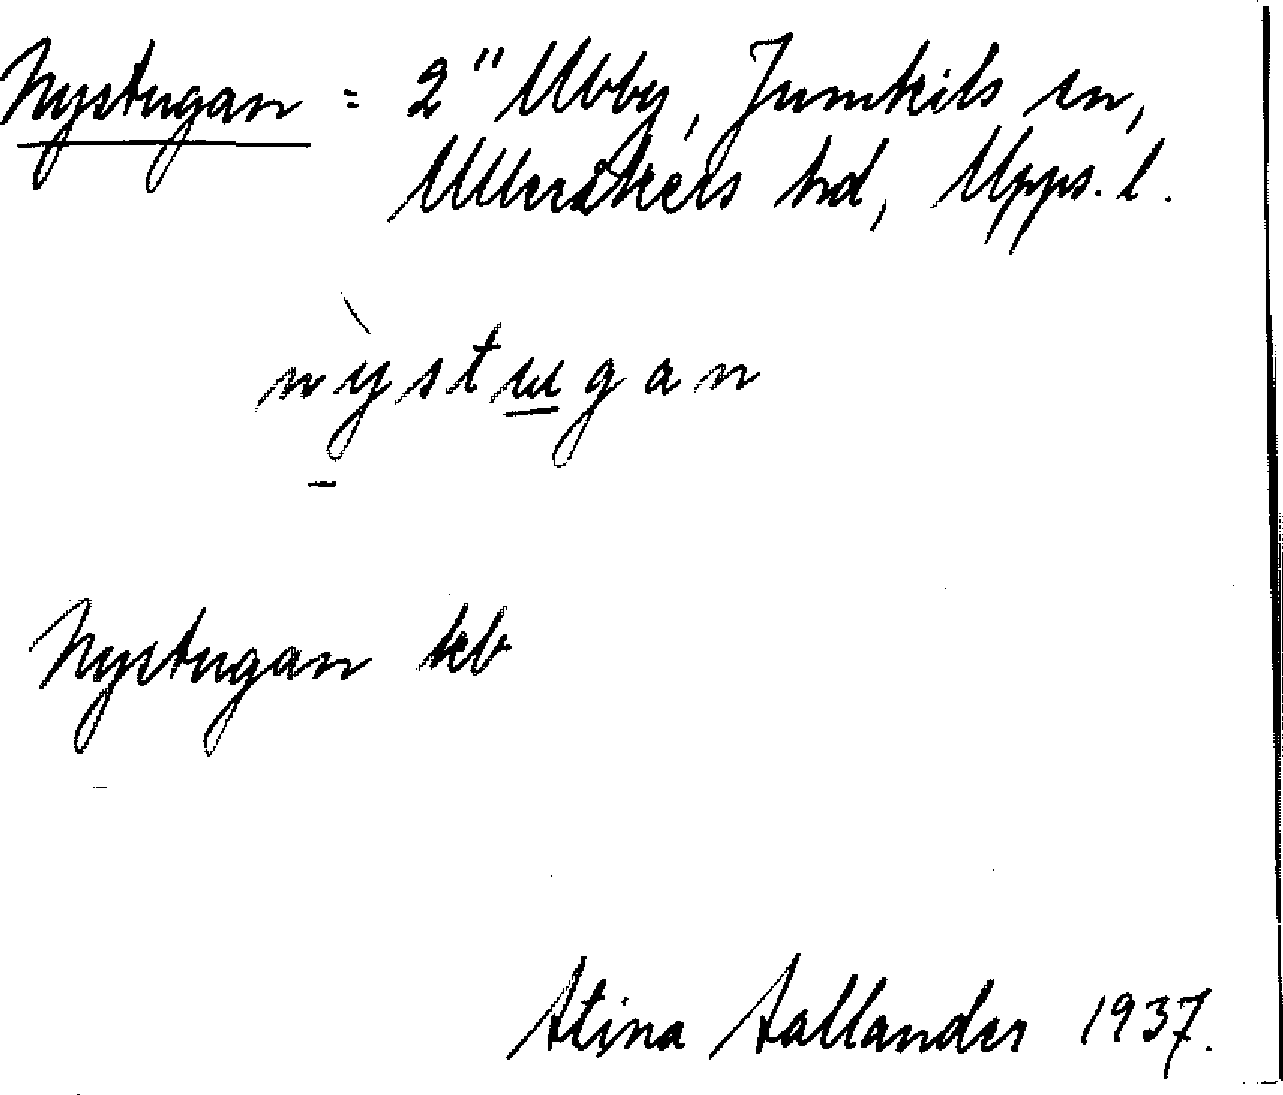 Nystugan = 2" Ubby, Jumkils sn,
Ulleråkers hd, Upps. l.
nỳstugan
Nystugan kb
Stina Sallander 1937.